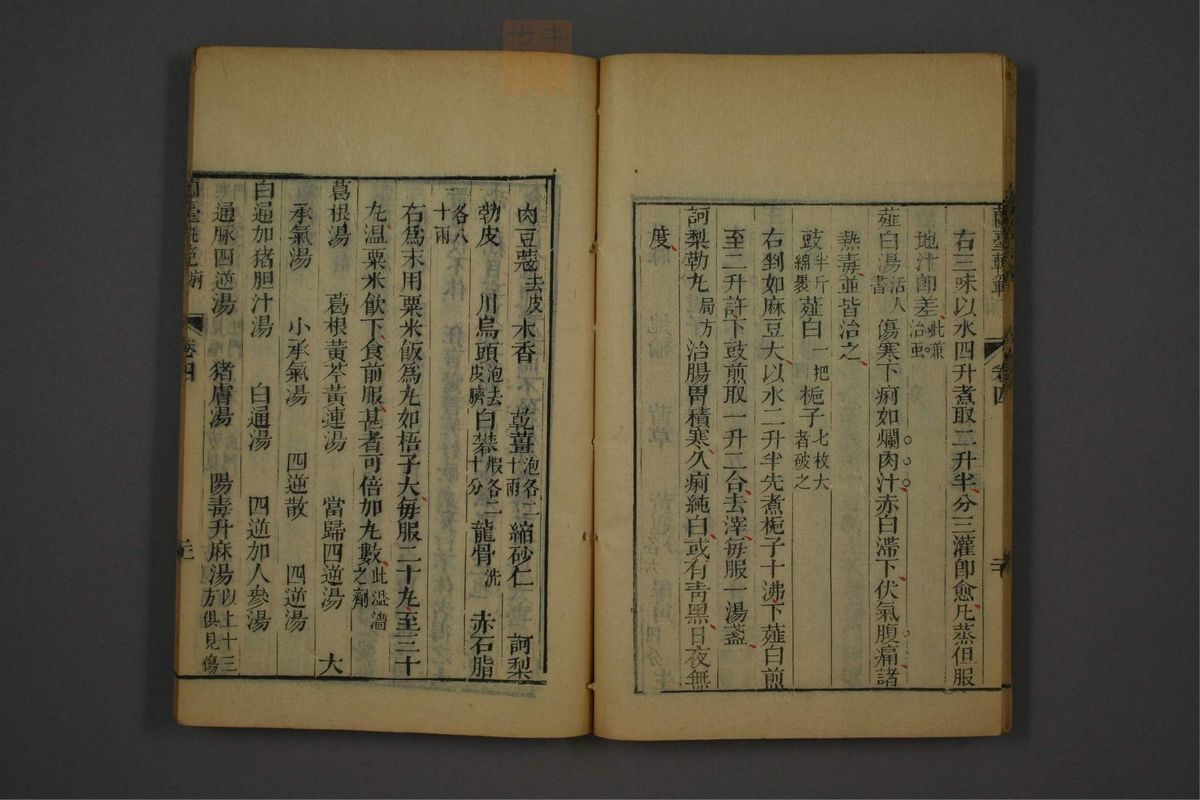 蘭臺軌範 卷四
右三味以水四升煮取二升半分三灌卽愈凢蒸但服
地汁卽差此兼治䘌
薤白湯活人書 傷寒下痢如爛肉汁赤白滯下伏氣腹痛諸
熱毒並皆治之
豉半斤綿裹 薤白一把 梔子七枚大者破之
右剉如麻豆大以水二升半先煮梔子十沸下薤白煎
至二升許下豉煎取一升二合去滓每服一湯盞
訶梨勒丸局方 治腸胃積寒久痢純白或有靑黑日夜無
度
肉豆蔻去皮 木香 乾薑泡各二十兩 縮砂仁 訶梨
勒皮 川烏頭泡去皮臍 白礬煅各二十分 龍骨洗 赤石脂
各八十兩
右爲末用粟米飯爲丸如梧子大每服二十丸至三十
丸温粟米飲下食前服甚者可倍加丸數此澁濇之劑
葛根湯 葛根黃芩黃連湯 當歸四逆湯 大
承氣湯 小承氣湯 四逆散 四逆湯
白通加猪胆汁湯 白通湯 四逆加人參湯
通脉四逆湯 猪膚湯 陽毒升麻湯以上十三方俱見傷
卷四